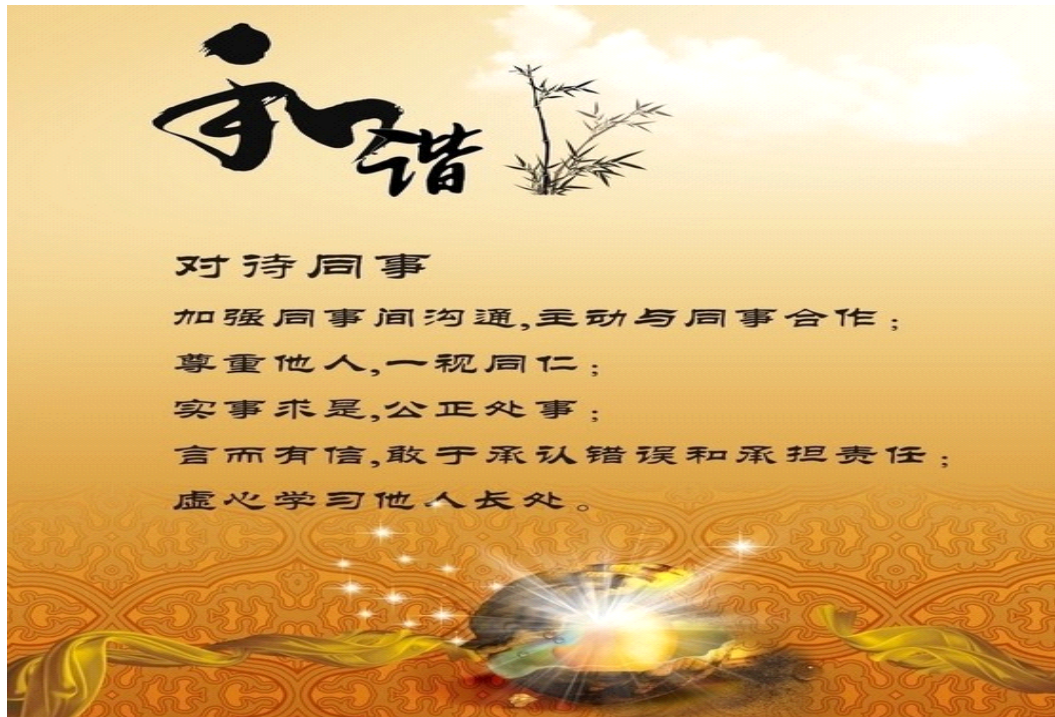 和谐
对待同事
加强同事间沟通,主动与同事合作；
尊重他人,一视同仁；
实事求是,公正处事；
言而有信,敢于承认错误和承担责任；
虚心学习他人长处。